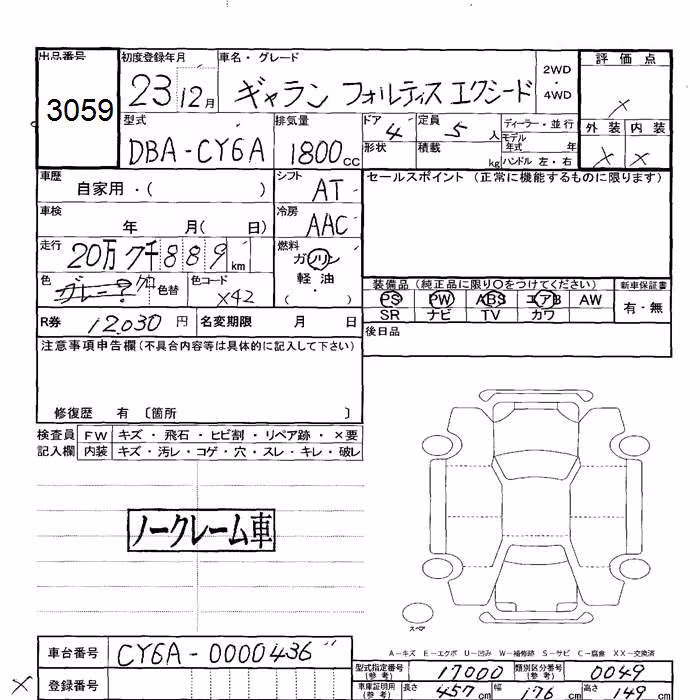 出品番号 初度登録年月 車名・グレード 評価点
3059 23 12月 ギャラン フォルティス エクシード 2WD・4WD
×
型式 排気量 ドア 4 定員 5人 ディーラー・並行 外装 内装
DBA-CY6A 1800cc 形状 積載 kg モデル年式 年 × ×
ハンドル 左・右
車歴 自家用・( ) シフト AT セールスポイント (正常に機能するものに限ります)
車検 年 月( 日) 冷房 AAC
走行 20万7千889km 燃料 ガソリン
軽油
( )
色 グレー 色替 色コード X42
装備品 (純正品に限り○をつけてください) 新車保証書
PS PW ABS エアB AW 有・無
SR ナビ TV カワ
R券 12,030円 名変期限 月 日 後日品
注意事項申告欄(不具合内容等は具体的に記入して下さい)
修復歴 有 〔箇所 〕
検査員 FW キズ・飛石・ヒビ割・リペア跡・×要
記入欄 内装 キズ・汚レ・コゲ・穴・スレ・キレ・破レ
ノークレーム車
スペア
A-キズ E-エクボ U-凹み W-補修跡 S-サビ C-腐食 XX-交換済
車台番号 CY6A-0000436"
型式指定番号(参考) 17000 類別区分番号(参考) 0049
× 登録番号
車庫証明用(参考) 長さ 457cm 幅 176cm 高さ 149cm